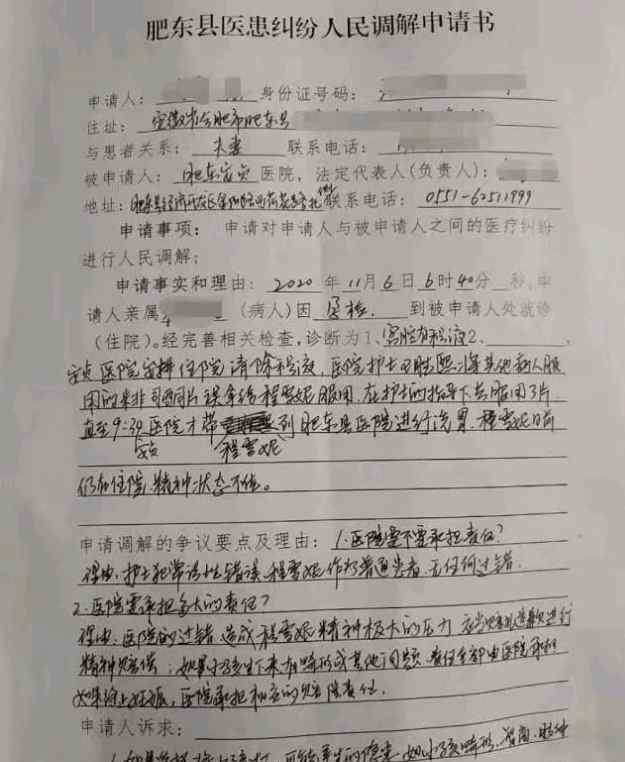 肥东县医患纠纷人民调解申请书
申请人: 身份证号码:
住址: 安徽省合肥市肥东县
与患者关系: 夫妻 联系电话:
被申请人: 肥东安贞 医院, 法定代表人(负责人):
地址: 肥东县经济开发区 联系电话: 0551-62511999
申请事项: 申请对申请人与被申请人之间的医疗纠纷
进行人民调解;
申请事实和理由: 2020 年 11 月 6 日 6 时 40 分 秒, 申
请人亲属 (病人)因 孕检 到被申请人处就诊
(住院)。经完善相关检查, 诊断为 1、宫腔有积液 2、
安贞医院安排住院清除积液, 医院护士 将其他病人服
用的米非司酮片误拿给程雪妮服用, 在护士的指导下共服用3片
直至9:30医院才带 到肥东县医院进行洗胃, 程雪妮目前
安贞 程雪妮
仍在住院, 精神状态不佳。
申请调解的争议要点及理由: 1.医院需不需要承担责任?
理由: 护士犯常识性错误, 程雪妮作为普通患者, 无任何过错.
2.医院需承担多大的责任?
理由: 医院的过错, 造成程雪妮精神极大的压力, 应当 进行
精神赔偿; 如果小孩生下来有畸形或其他问题, 责任全部由医院承担
如果终止妊娠, 医院承担相应的赔偿责任.
申请人诉求: